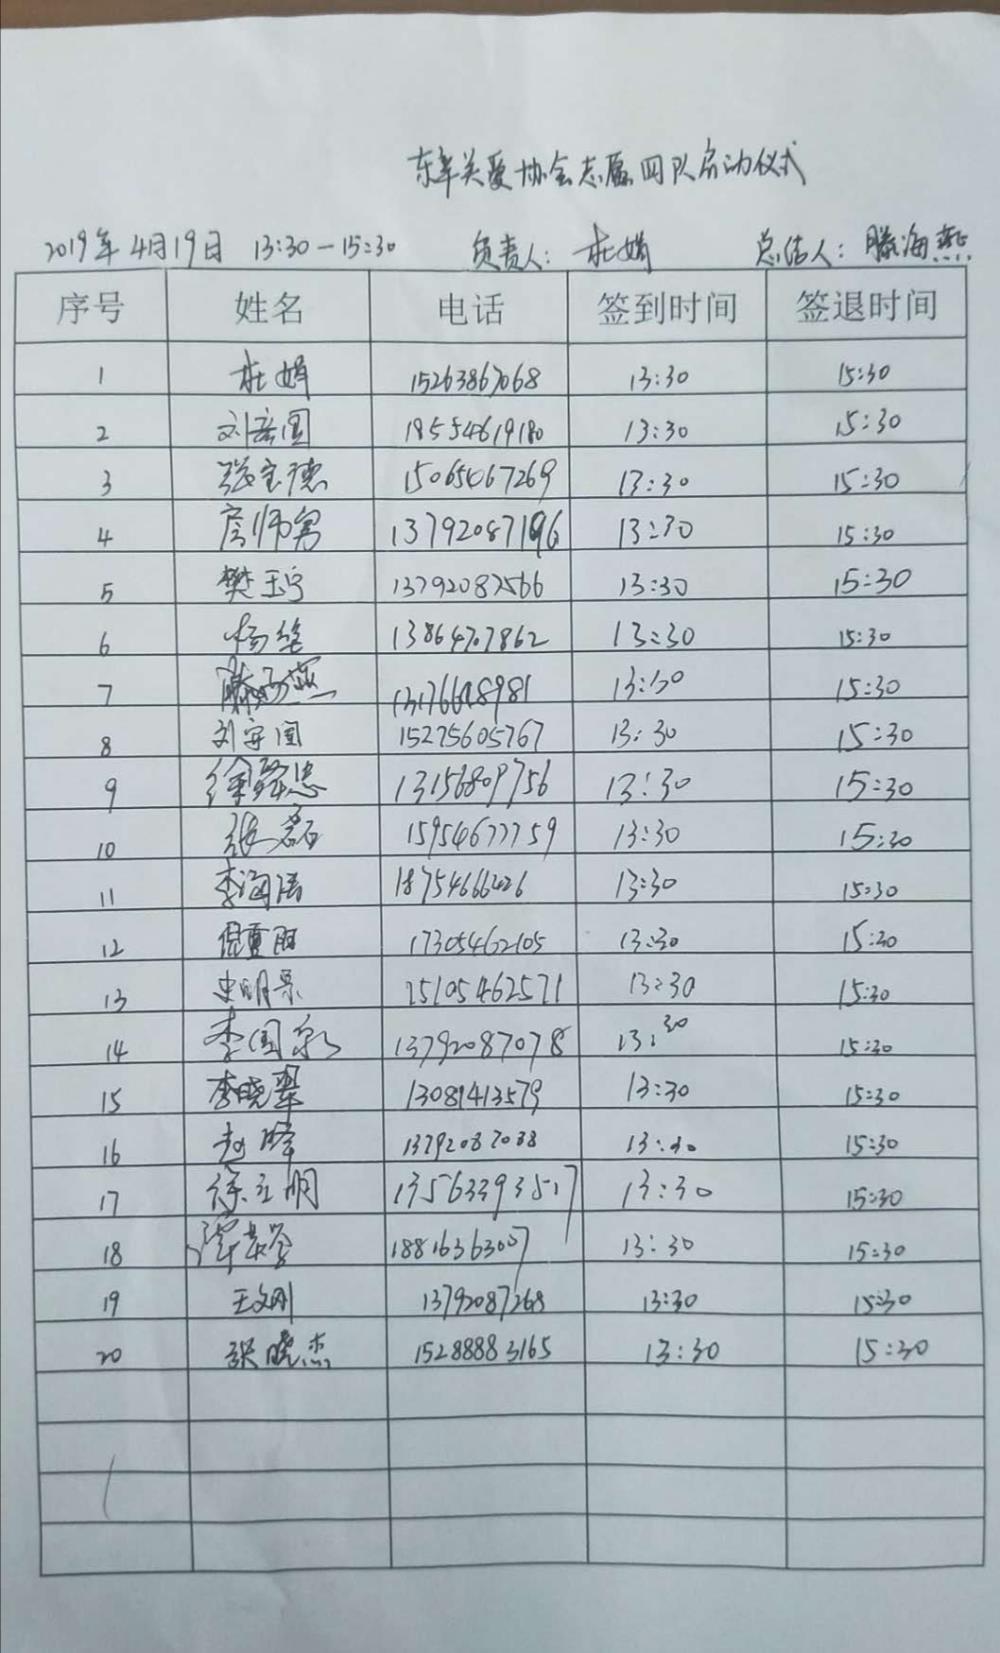 东辛关爱协会志愿团队启动仪式
2019年4月19日 13:30-15:30 负责人: 杜娟 总结人: 滕海燕
序号 姓名 电话 签到时间 签退时间
1 杜娟 15263867068 13:30 15:30
2 刘彦国 18554619180 13:30 15:30
3 张宝德 15065467269 13:30 15:30
4 13792087196 13:30 15:30
5 樊玉宁 13792087566 13:30 15:30
6 13864707862 13:30 15:30
7 滕海燕 13:30 15:30
8 刘安国 15275605767 13:30 15:30
9 13156809756 13:30 15:30
10 张磊 15954677759 13:30 15:30
11 李海 18754666426 13:30 15:30
12 17305462105 13:30 15:30
13 史明景 15105462571 13:30 15:30
14 李国泉 13792087078 13:30 15:30
15 李晓翠 13081413579 13:30 15:30
16 赵峰 13792087088 13:30 15:30
17 徐立明 13563393517 13:30 15:30
18 18816363007 13:30 15:30
19 王文刚 13792087268 13:30 15:30
20 张晓杰 15288883165 13:30 15:30